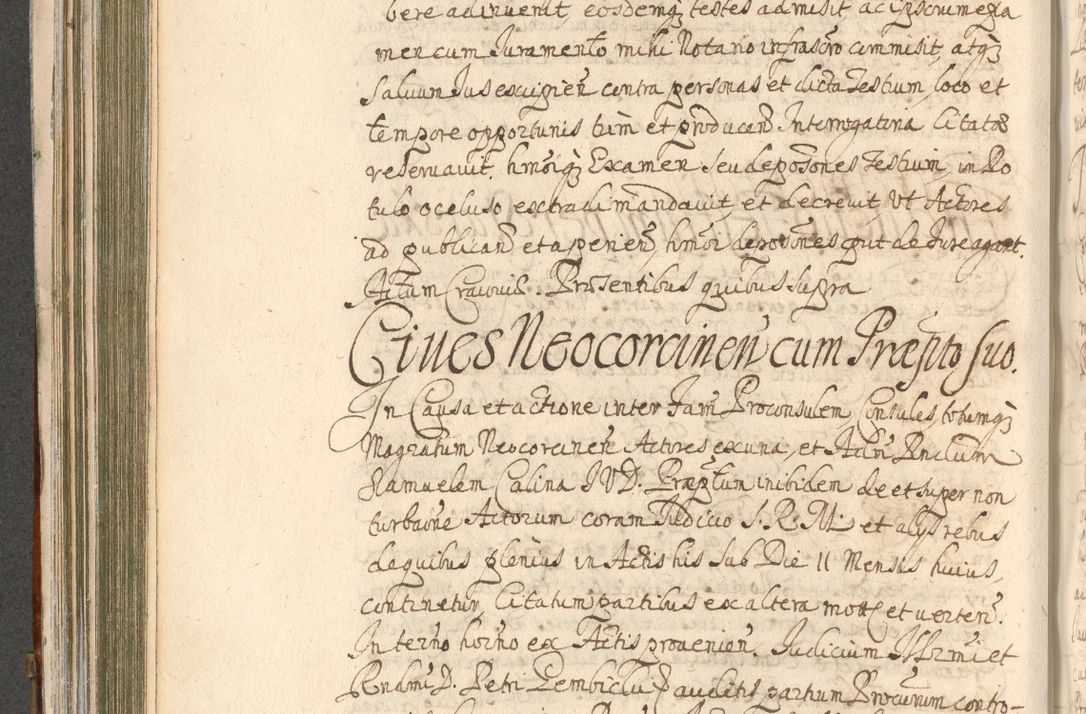 bere adinvenit, eosdemq; testes admisit ac ipsorum exa
men cum Juramento mihi Notario infrascro commisit, atq;
Saluum Jus excipien contra personas et dicta Testium, loco et
tempore opportunis tum et producen Interrogatoria Citatos
reservauit, hmoiq; Examen seu depoones Testium, in Ro
tulo occluso extradi mandauit, et decreuit, Vt Actores
ad publican et aperien, hmoi deposones, put de Jure agant.
Actum Cracoviæ. Præsentibus quibus supra
Ciues Neocorcinen cum Præpito suo.
In Causa et actione inter Fam Proconsulem, Consules, totumq;
Magratum Neocorcinen Actores ex una, et Adm Rndum
Samuelem Calina JVD. Præptum inibidem de et super non
turbaone Actorum coram Judicio S. R. M. et alys rebus
de quibus plenius in Actis his sub Die 11 Mensis huius,
continetur, Citatum partibus ex altera mott et uerten.
In terno horno ex Actis provenien. Judicium Illrmi et
Rndmi D. Petri Gembicki auditis partium Procurum contro-